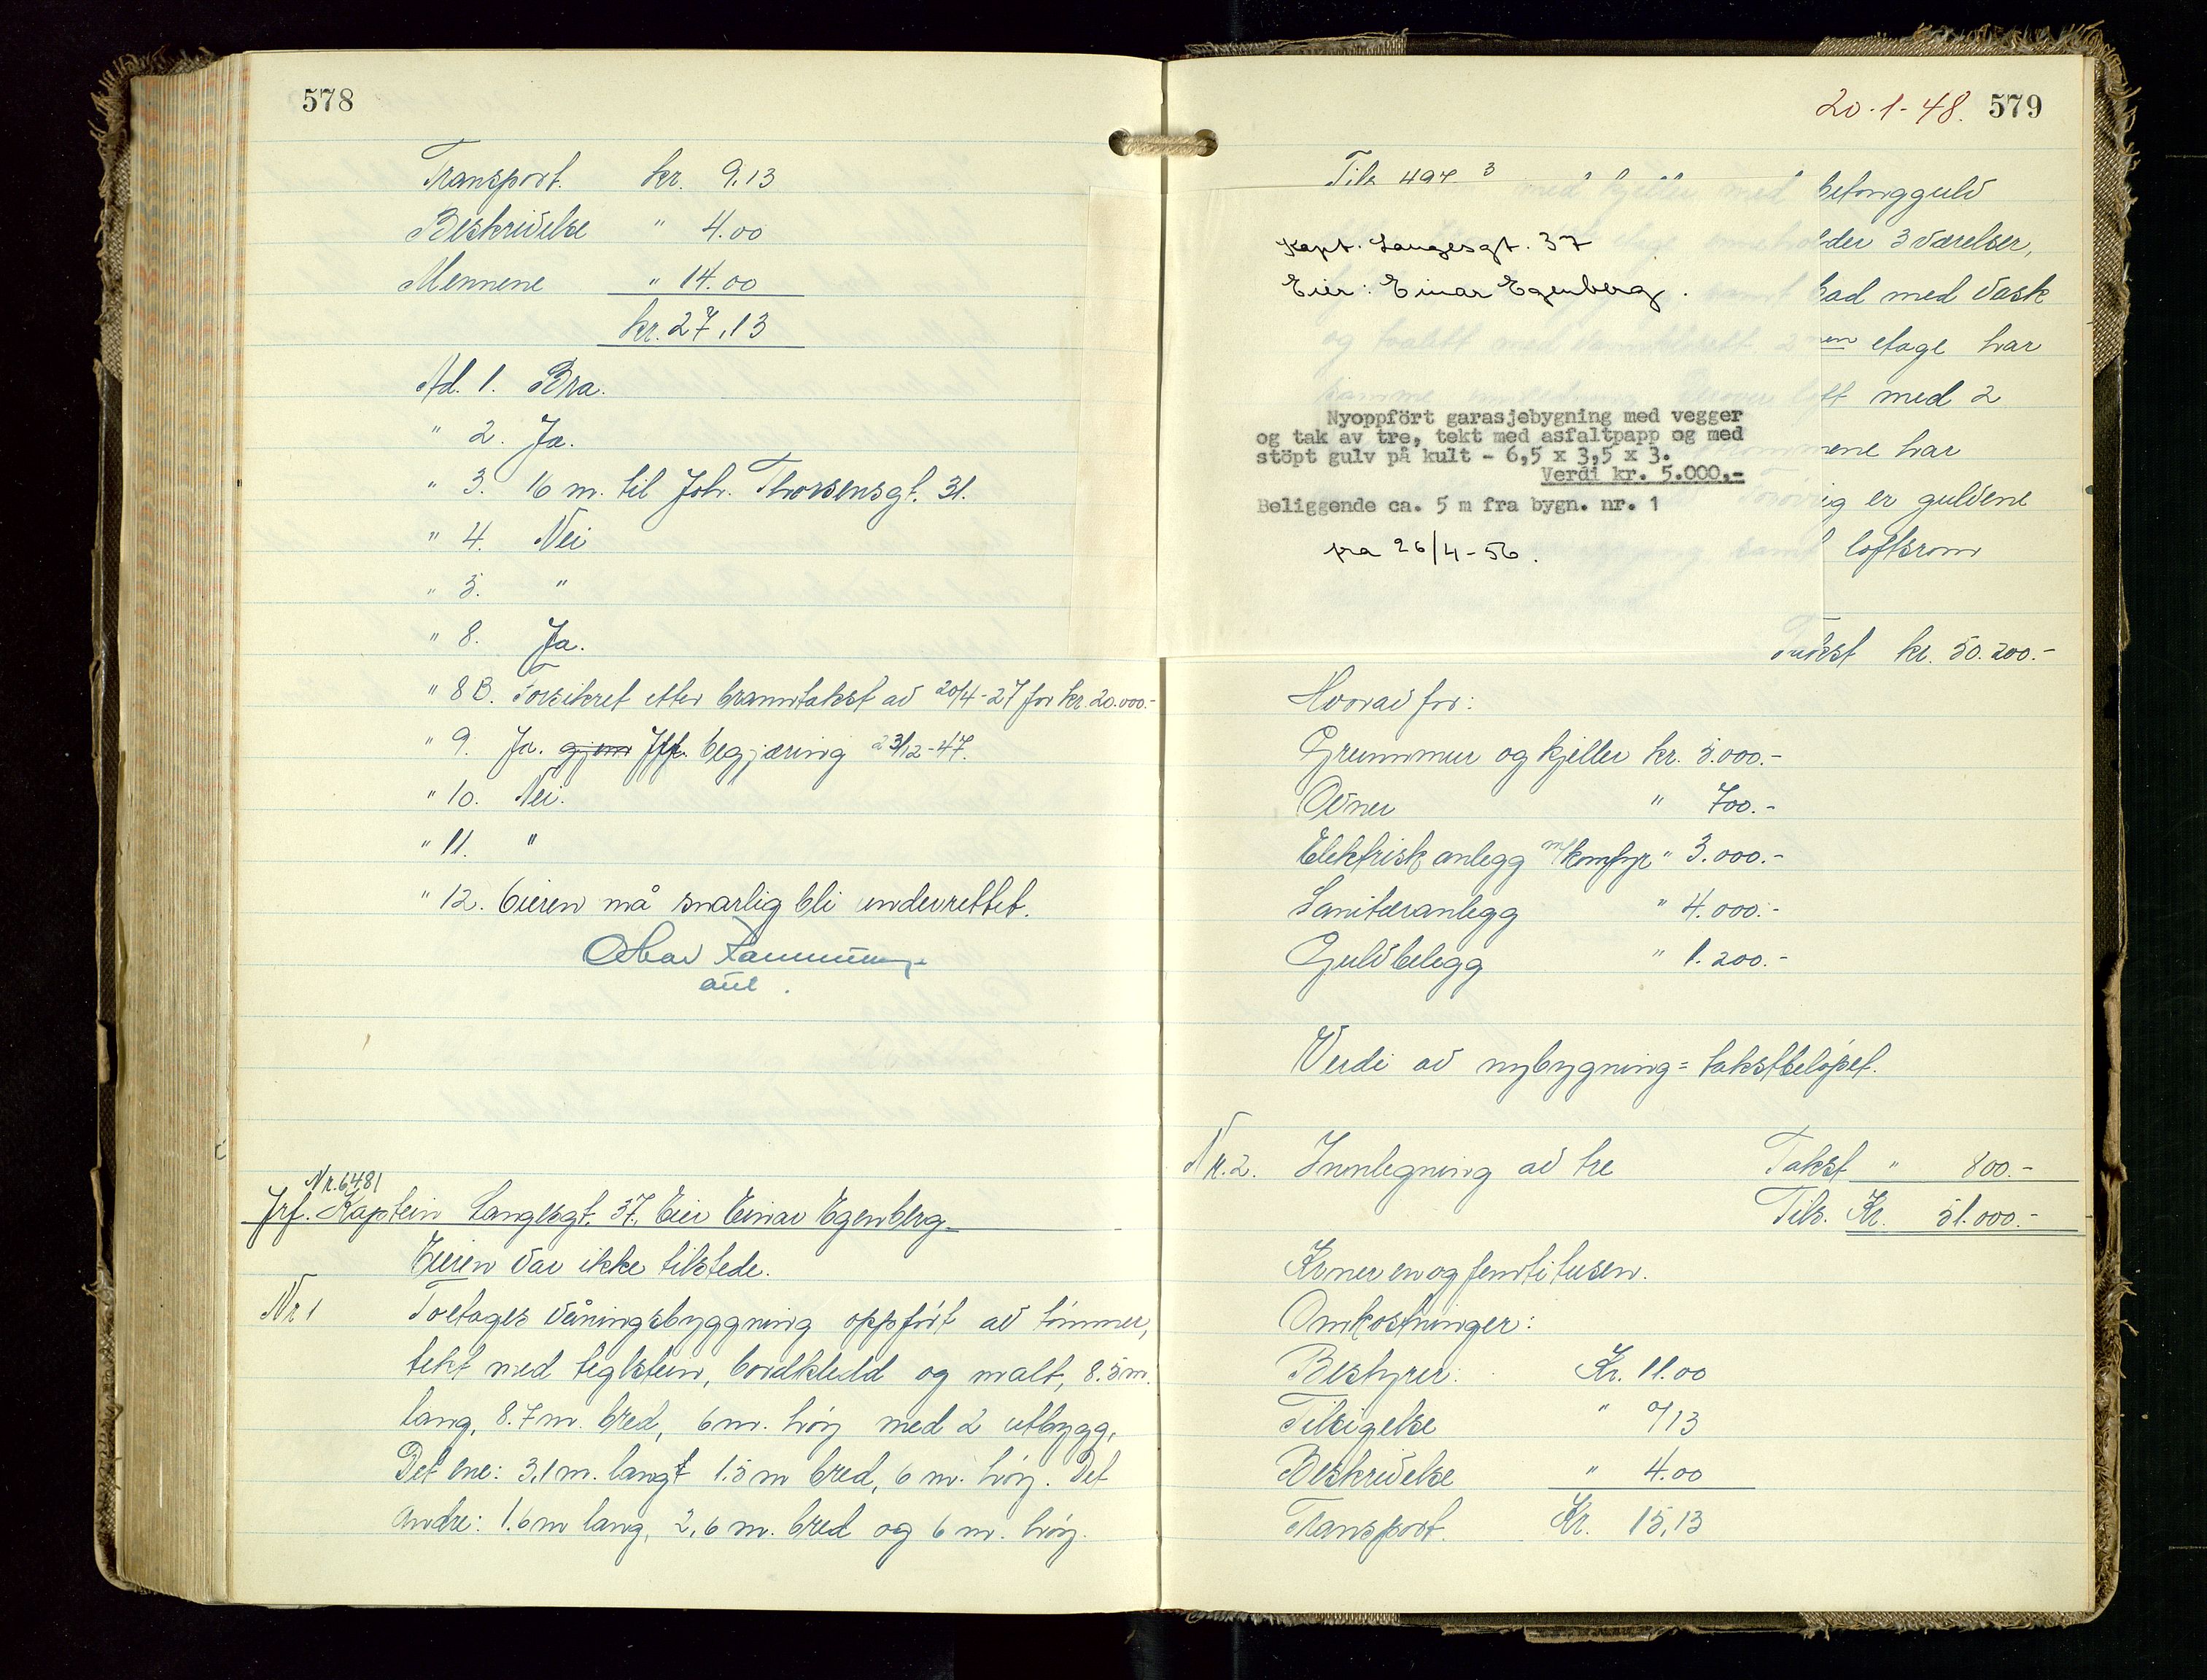 578
Transport. kr. 9.13
Beskrivelse " 4.00
Mennene " 14.00
kr. 27,13
Ad. 1. Bra.
" 2. Ja.
" 3. 16 m. til Joh. Thorsensgt. 31.
" 4. Nei
" 5. "
" 8. Ja.
" 8 B. Forsikret etter branntakst av 20/4-27 for kr. 20.000.-
" 9. Ja. Jfr. begjæring 23/12-47.
" 10. Nei.
" 11. "
" 12. Eieren må snarlig bli underrettet.
Nr. 6481
Jrf. Kaptein Langesgt. 37. Eier Einar Egenberg.
Eieren var ikke tilstede.
Nr 1 Toetages våningsbyggning oppført av tømmer,
tekt med teglstein, bordkledd og malt, 8.5 m.
lang, 8.7 m. bred, 6 m. høy med 2 utbygg.
Det ene: 3,1 m. langt 1.5 m bred, 6 m. høy. Det
andre: 1.6 m lang, 2,6 m. bred og 6 m. høy.
20-1-48. 579
Tils 497 3
betonggulv
der 3 værelser,
Kapt. Langesgt. 37
Eier: Einar Egenberg.
bad med vask
og toalett med vannklosett 2nen etage har
samme innredning. Derover loft med 2
Nyoppfört garasjebygning med vegger
og tak av tre, tekt med asfaltpapp og med
stöpt gulv på kult - 6,5 x 3,5 x 3.
Verdi kr. 5.000,-
Beliggende ca. 5 m fra bygn. nr. 1
fra 26/4-56.
mene har
ig er gulvene
samt loftsrom
Takst kr. 50.200.-
Hvorav for:
Grunnmur og kjeller kr. 5.000.-
Ovner " 700.-
Elektrisk anlegg m/komfyr " 3.000.-
Sanitæranlegg " 4.000.-
Gulvbelegg " 1.200.-
Verdi av nybygning = takstbeløpet.
Nr. 2. Innlegning av tre Takst " 800.-
Tils. Kr. 51.000.-
Kroner en og femti tusen.
Omkostninger:
Bestyrer: Kr. 11.00
Tilsigelse " 0/13
Beskrivelse " 4.00
Transport. Kr. 15,13